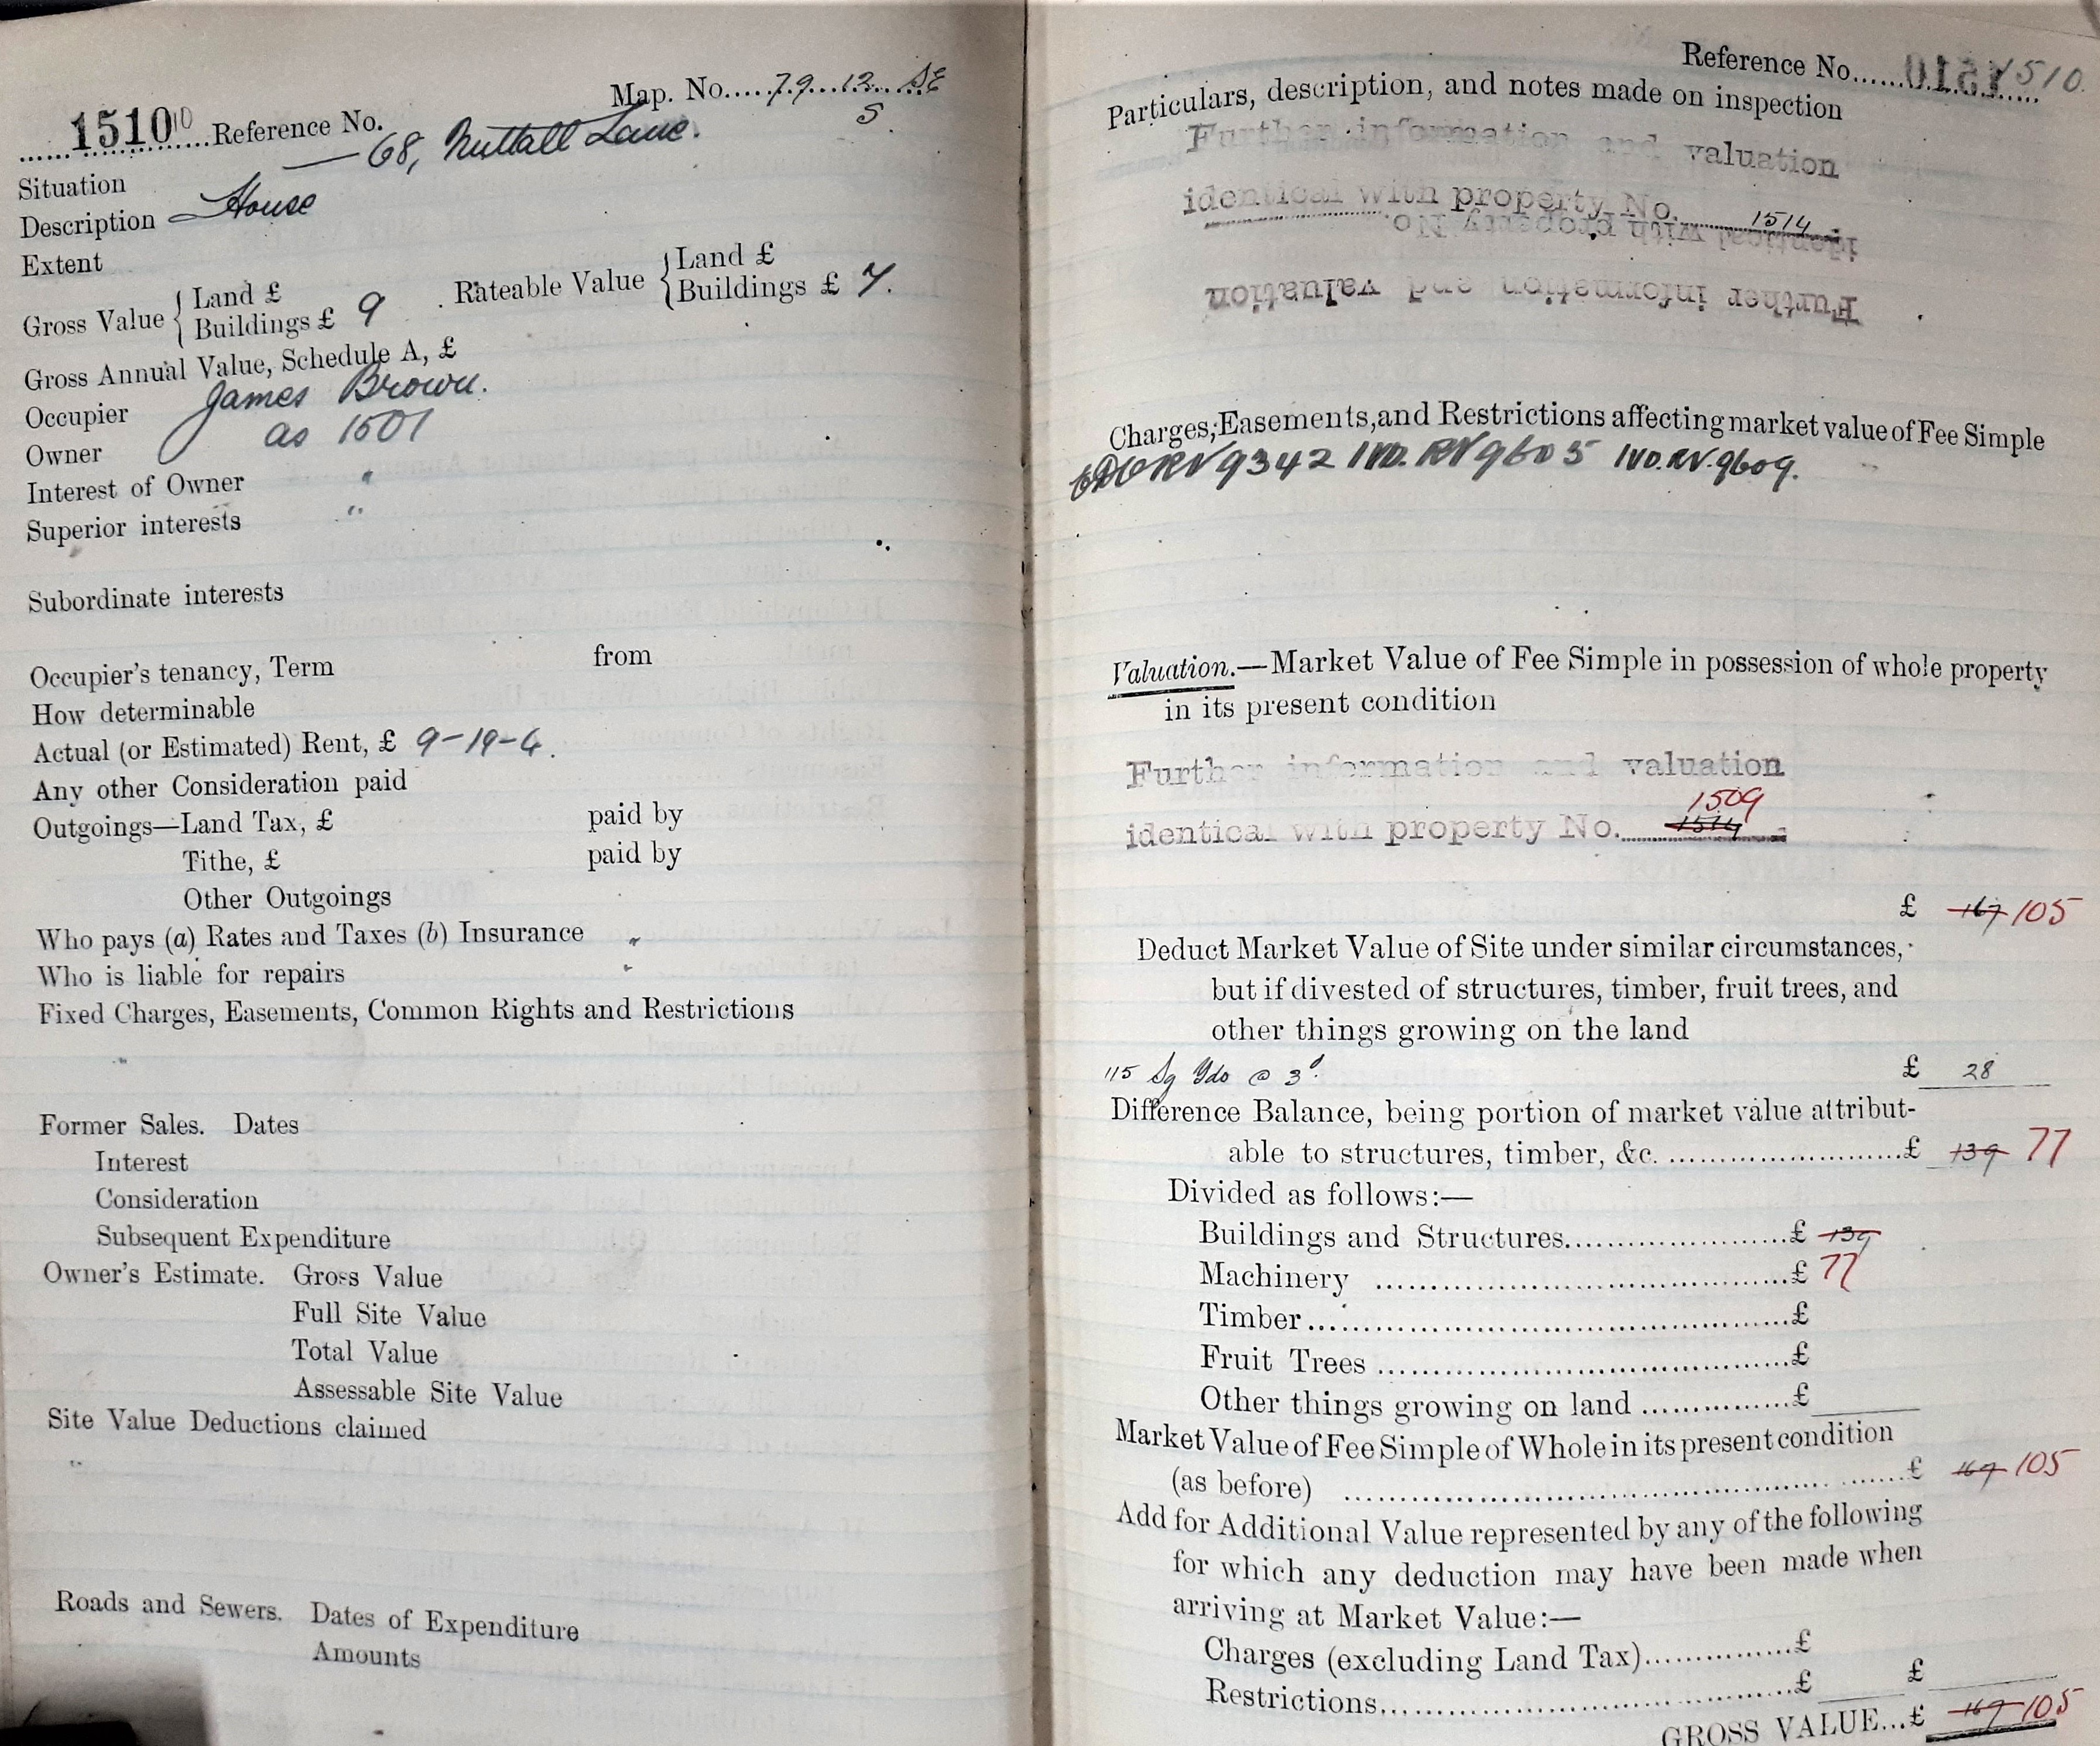 1510 Reference No. Map. No.....79.12. SE
S.
Situation — 68, Nuttall Lane.
Description House
Extent
Gross Value { Land £
Buildings £ 9
Rateable Value { Land £
Buildings £ 7.
Gross Annual Value, Schedule A, £
Occupier James Brown.
Owner as 1501
Interest of Owner "
Superior interests "
Subordinate interests
Occupier's tenancy, Term from
How determinable
Actual (or Estimated) Rent, £ 9-19-4.
Any other Consideration paid
Outgoings—Land Tax, £ paid by
Tithe, £ paid by
Other Outgoings
Who pays (a) Rates and Taxes (b) Insurance "
Who is liable for repairs "
Fixed Charges, Easements, Common Rights and Restrictions
"
Former Sales. Dates
Interest
Consideration
Subsequent Expenditure
Owner's Estimate. Gross Value
Full Site Value
Total Value
Assessable Site Value
Site Value Deductions claimed
"
Roads and Sewers. Dates of Expenditure
Amounts
Reference No. 1510 1510.
Particulars, description, and notes made on inspection
Further information and valuation
identical with property No. 1514
identical with property No.
Further information and valuation
Charges, Easements, and Restrictions affecting market value of Fee Simple
RV 9342 IVD. RV 9605 IVD. RV. 9609.
Valuation.—Market Value of Fee Simple in possession of whole property
in its present condition
Further information and valuation
1509
identical with property No. 1514
£ 167 105
Deduct Market Value of Site under similar circumstances,
but if divested of structures, timber, fruit trees, and
other things growing on the land
115 Sq Yds @ 3d. £ 28
Difference Balance, being portion of market value attribut-
able to structures, timber, &c. £ 139 77
Divided as follows:—
Buildings and Structures £ 139
Machinery £ 77
Timber £
Fruit Trees £
Other things growing on land £
Market Value of Fee Simple of Whole in its present condition
(as before) £ 167 105
Add for Additional Value represented by any of the following
for which any deduction may have been made when
arriving at Market Value:—
Charges (excluding Land Tax) £
Restrictions £ £
GROSS VALUE...£ 167 105